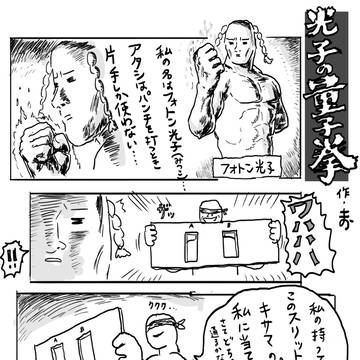 光子の量子拳
作・
私の名はフォトン光子(みつこ)…
アタシはパンチを打つとき
片手しか使わない…
フォトン光子
ワハハハ
ザッ
A B
!!
私の持って
このスリット
キサマ、の
私に当て
ククク…
A B